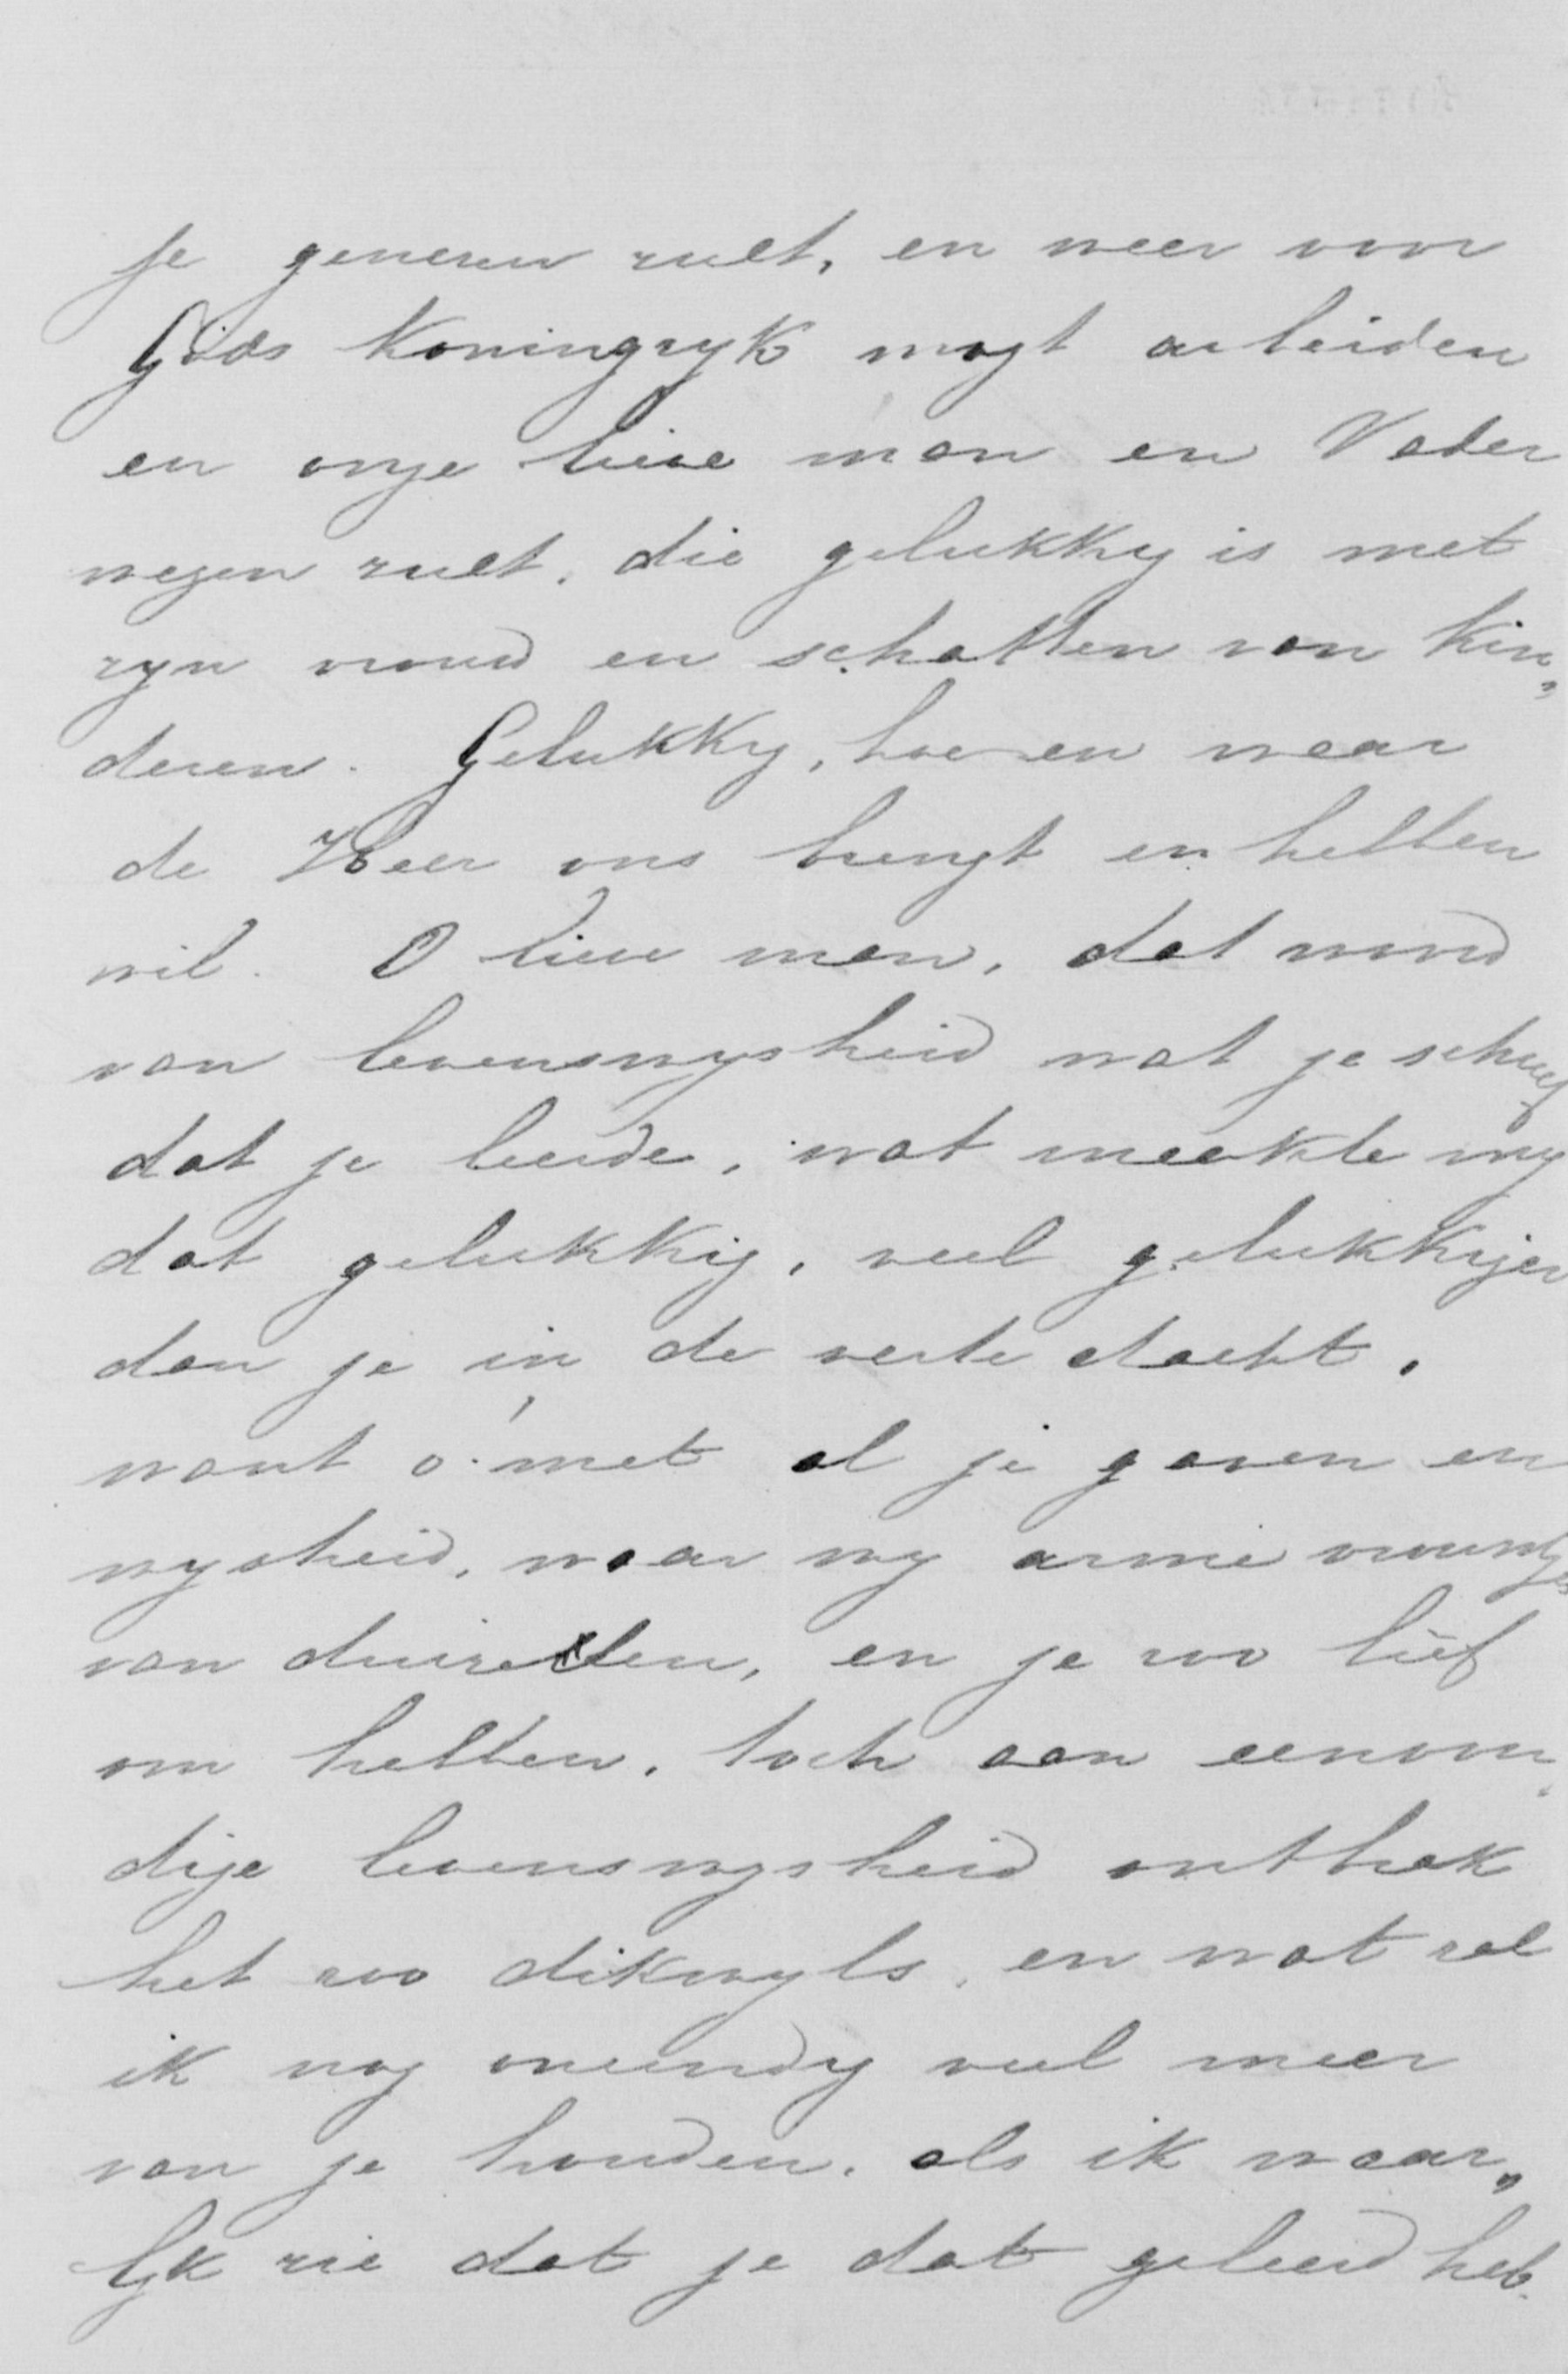 je genezen zult, en weer voor
Gods Koningryk mogt arbeiden
en onze lieve man en Vader
wezen zult, die gelukkig is met
zyn vrouw en schatten van kin„
deren. Gelukkig, hoe en waar
de Heer ons brengt en hebben
wil. O lieve man, dat woord
van levenswysheid wat je schreef
dat je leerde, wat maakte my
dat gelukkig, veel gelukkiger
dan je in de verte dacht,
want o! met al je gaven en
wysheid, waar wy arme vrouwtjes
van duizelen, en je zoo lief
om hebben, toch aan eenvou„
dige levenswysheid ontbrak
het zoo dikwyls, en wat zal
ik nog oneindig veel meer
van je houden, als ik waar„
lyk zie dat je dat geleerd heb.